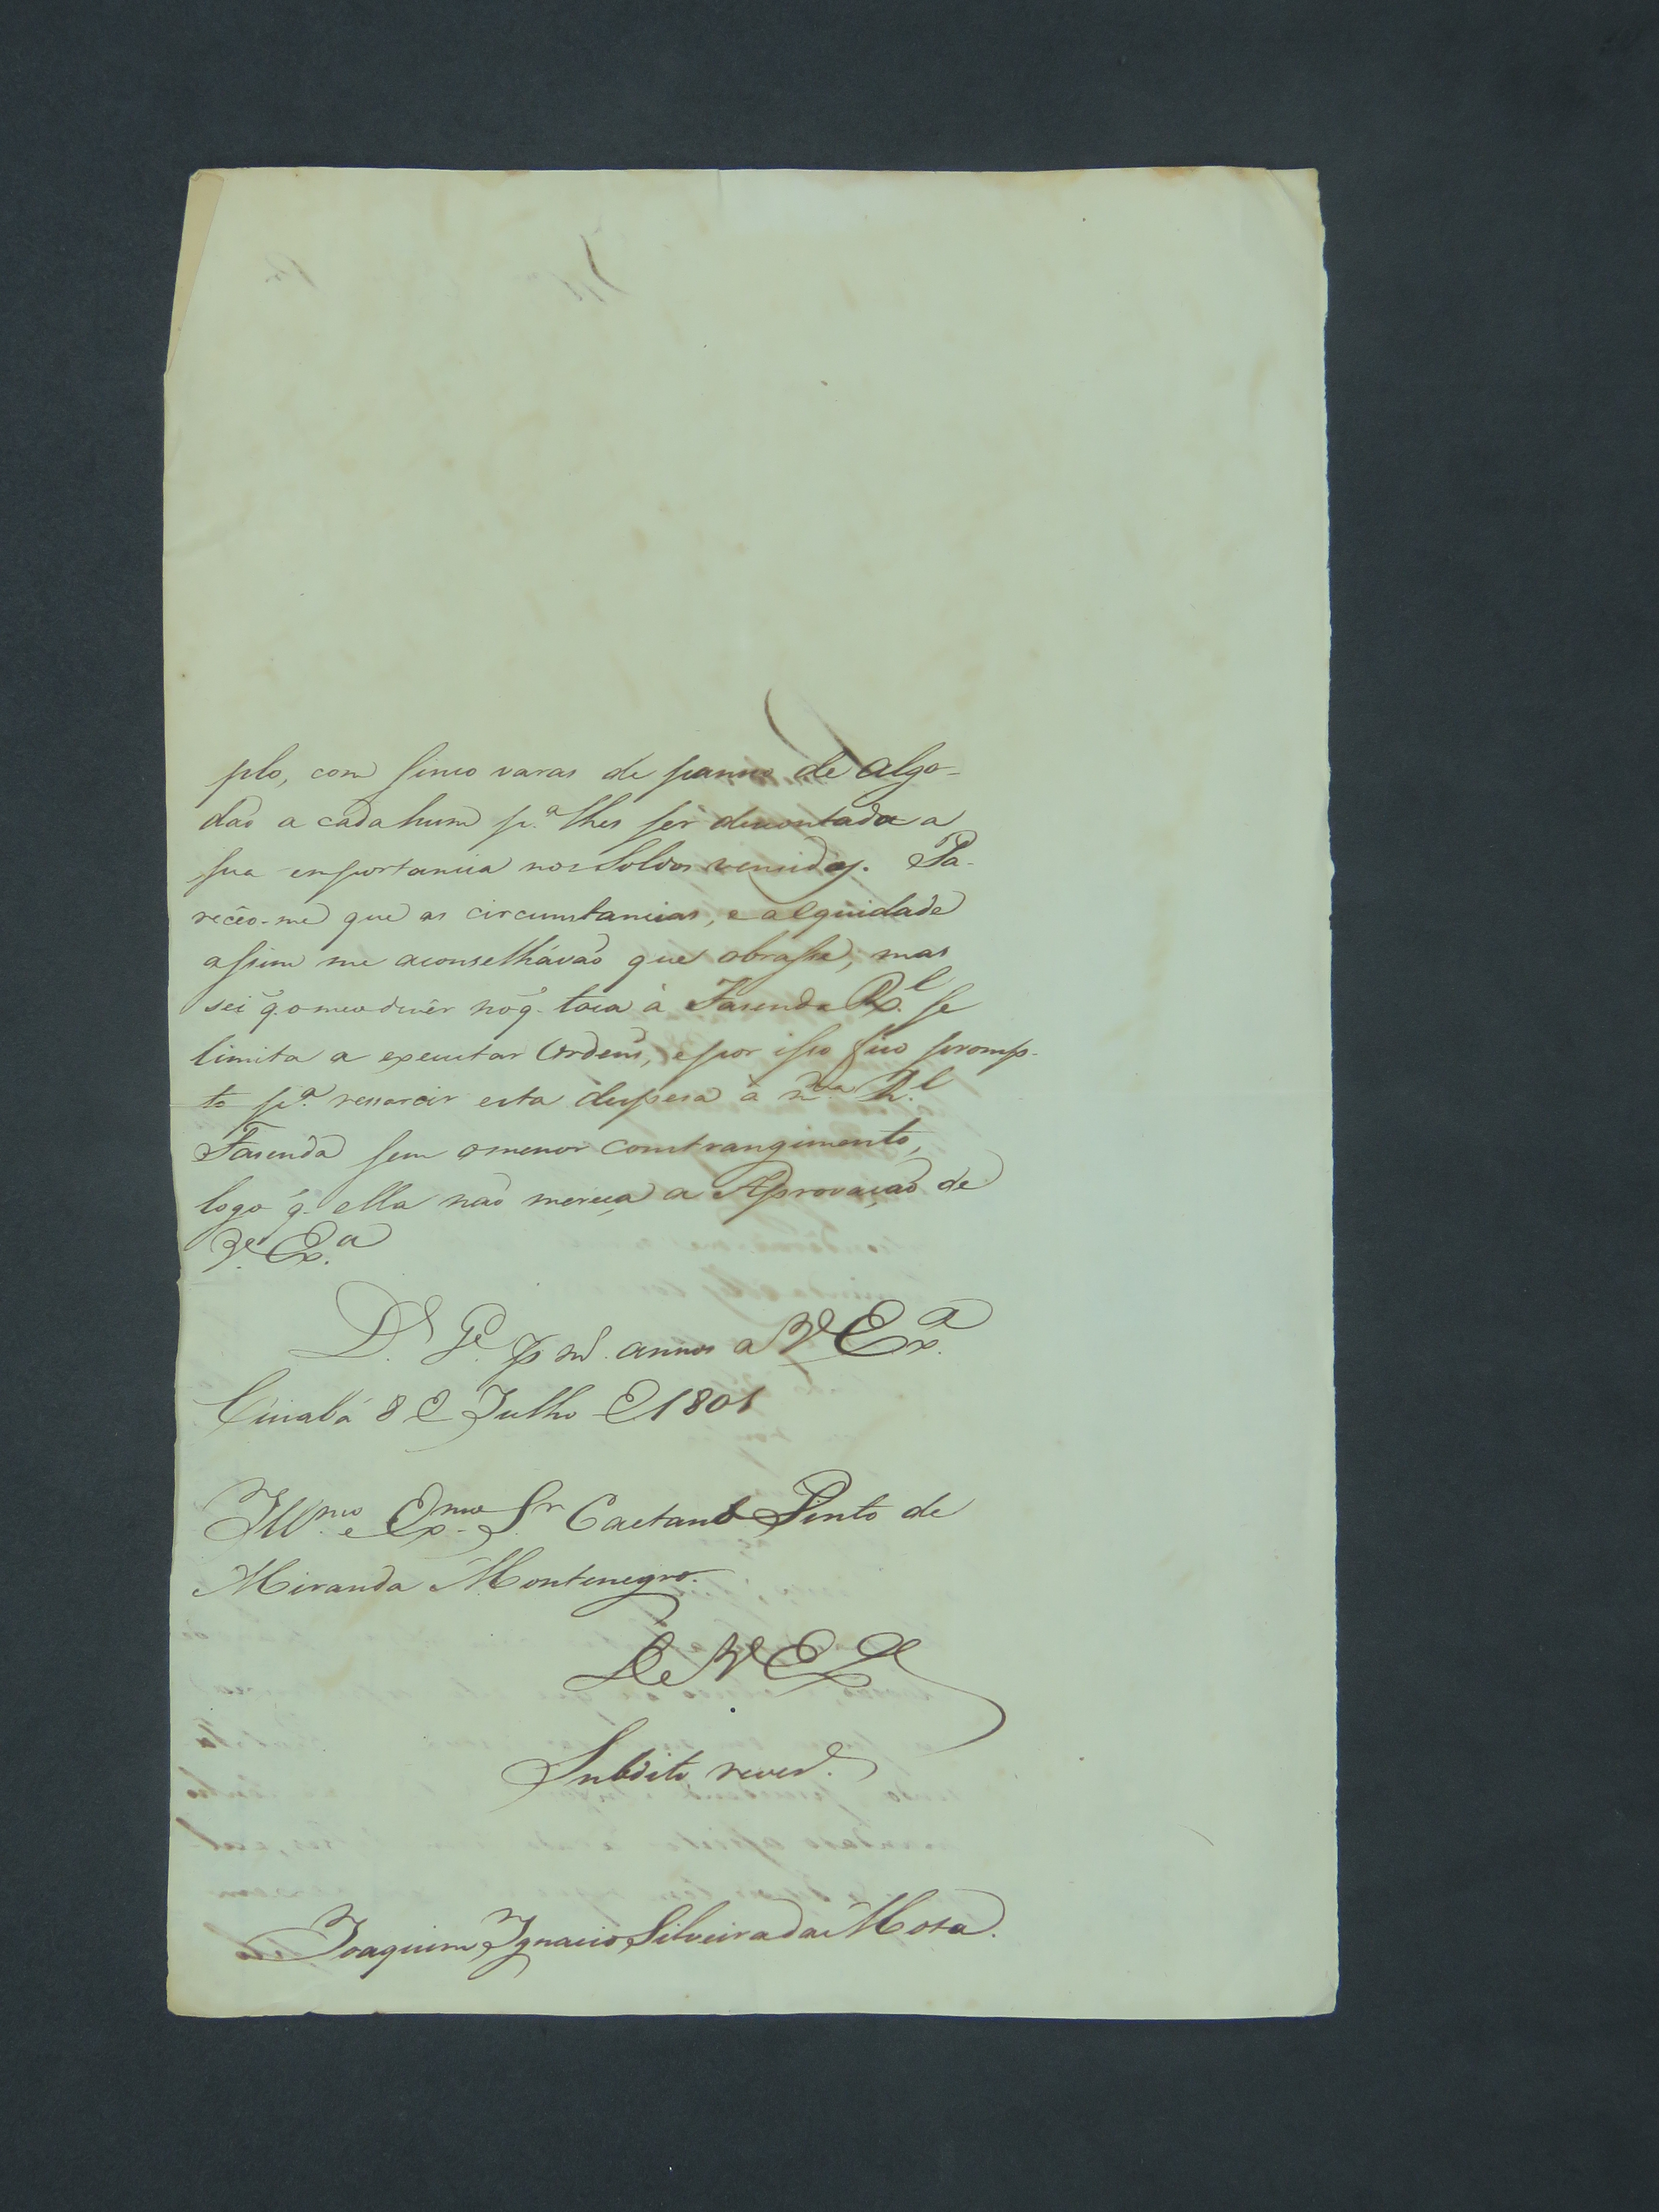 plo, com sinco varas de panno de algo-
dão a cada hum p.ª lhes ser descontada a
sua emportancia nos Soldos vencidos. Pa-
recêo-me que as circunstancias, e a eqüidade
assim me aconselhávão que obrasse; mas
sei q̃ o meo devêr no q̃ toca à Fasenda R.l se
limita a executar Ordens, e por isso fico promp-
to p.ª ressarcir esta despesa à m.ma R.l
Fasenda sem o menor constrangimento,
logo q̃ ella não mereça a Aprovação de
V. Ex.ª
D.s G.e p m.s annos a V Ex.ª
Cuiabá 8 de Julho de 1801
Ill.mo e Ex.mo Sr. Caetano Pinto de
Miranda Montenegro.
De V Ex.ª
Subdito rever.e
Joaquim Ignacio Silveira da Mota.